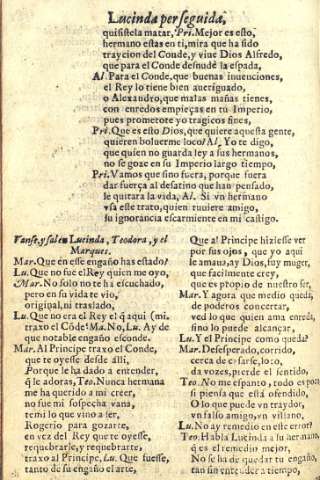 Lucinda perseguida,
quisistela matar, Pri. Mejor es esto,
hermano estas en ti, mira que ha sido
trayciõn del Conde, y viue Dios Alfredo,
que para el Conde desnude la espada,
Al. Para el Conde, que buenas inuenciones,
el Rey lo tiene bien aueriguado,
o Alexandro, que malas mañas tienes,
con enredos empieças en tu Imperio,
pues prometote yo tragicos fines,
Pri. Que es esto Dios, que quiere aquesta gente,
quieren boluerme loco? Al, Yo te digo,
que quien no guarda ley a sus hermanos,
no se goze en su Imperio largo tiempo,
Pri. Vamos que sino fuera, porque fuera
dar fuerça al desatino que han pensado,
le quitara la vida, Al. Si vn hermano
vsa este trato, quien tuuiere amigo,
su ignorancia escarmiente en mi castigo.
Vanse, y salen Lucinda, Teodora, y el
Marques.
Mar. Que en esse engaño has estado?
Lu. Que no fue el Rey quien me oyo,
Mar. No solo no te ha escuchado,
pero en su vida te vio,
original, ni traslado,
Lu. Que no era el Rey el q̃ aqui (mi.
traxo el Cõde? Ma. No, Lu. Ay de
que notable engaño esconde.
Mar. Al Principe traxo el Conde,
que te oyesse desde alli,
Porque le ha dado a entender,
q̃ le adoras, Teo. Nunca hermana
me ha querido a mi creer,
no fue mi sospecha vana,
temi lo que vino a ser,
Rogerio para gozarte,
en vez del Rey que te oyesse,
requebrarle, y requebrarte,
traxo al Principe, Lu. Que fuesse,
tanto de su engaño el arte,
Que al Principe hiziesse ver
por sus ojos, que yo aqui
le amaua, ay Dios, fuy muger,
que facilmente crey,
que es propio de nuestro ser,
Mar. Y agora que medio queda,
de poderos concertar,
ved lo que quien ama enreda,
sino lo puede alcançar,
Lu. Y el Principe como queda?
Mar. Desesperado, corrido,
cerca de esfarse, loco,
da vozes, pierde el sentido,
Teo. No me espanto, todo es poco
si piensa que está ofendido,
O lo que puede vn traydor,
vn falso amigo, vn villano,
Lu. No ay remedio en este error?
Teo. Habla Lucinda a su hermano,
q̃ es el remedio mejor,
No se ha de quedar tu engaño,
tan sin entender a tiempo,